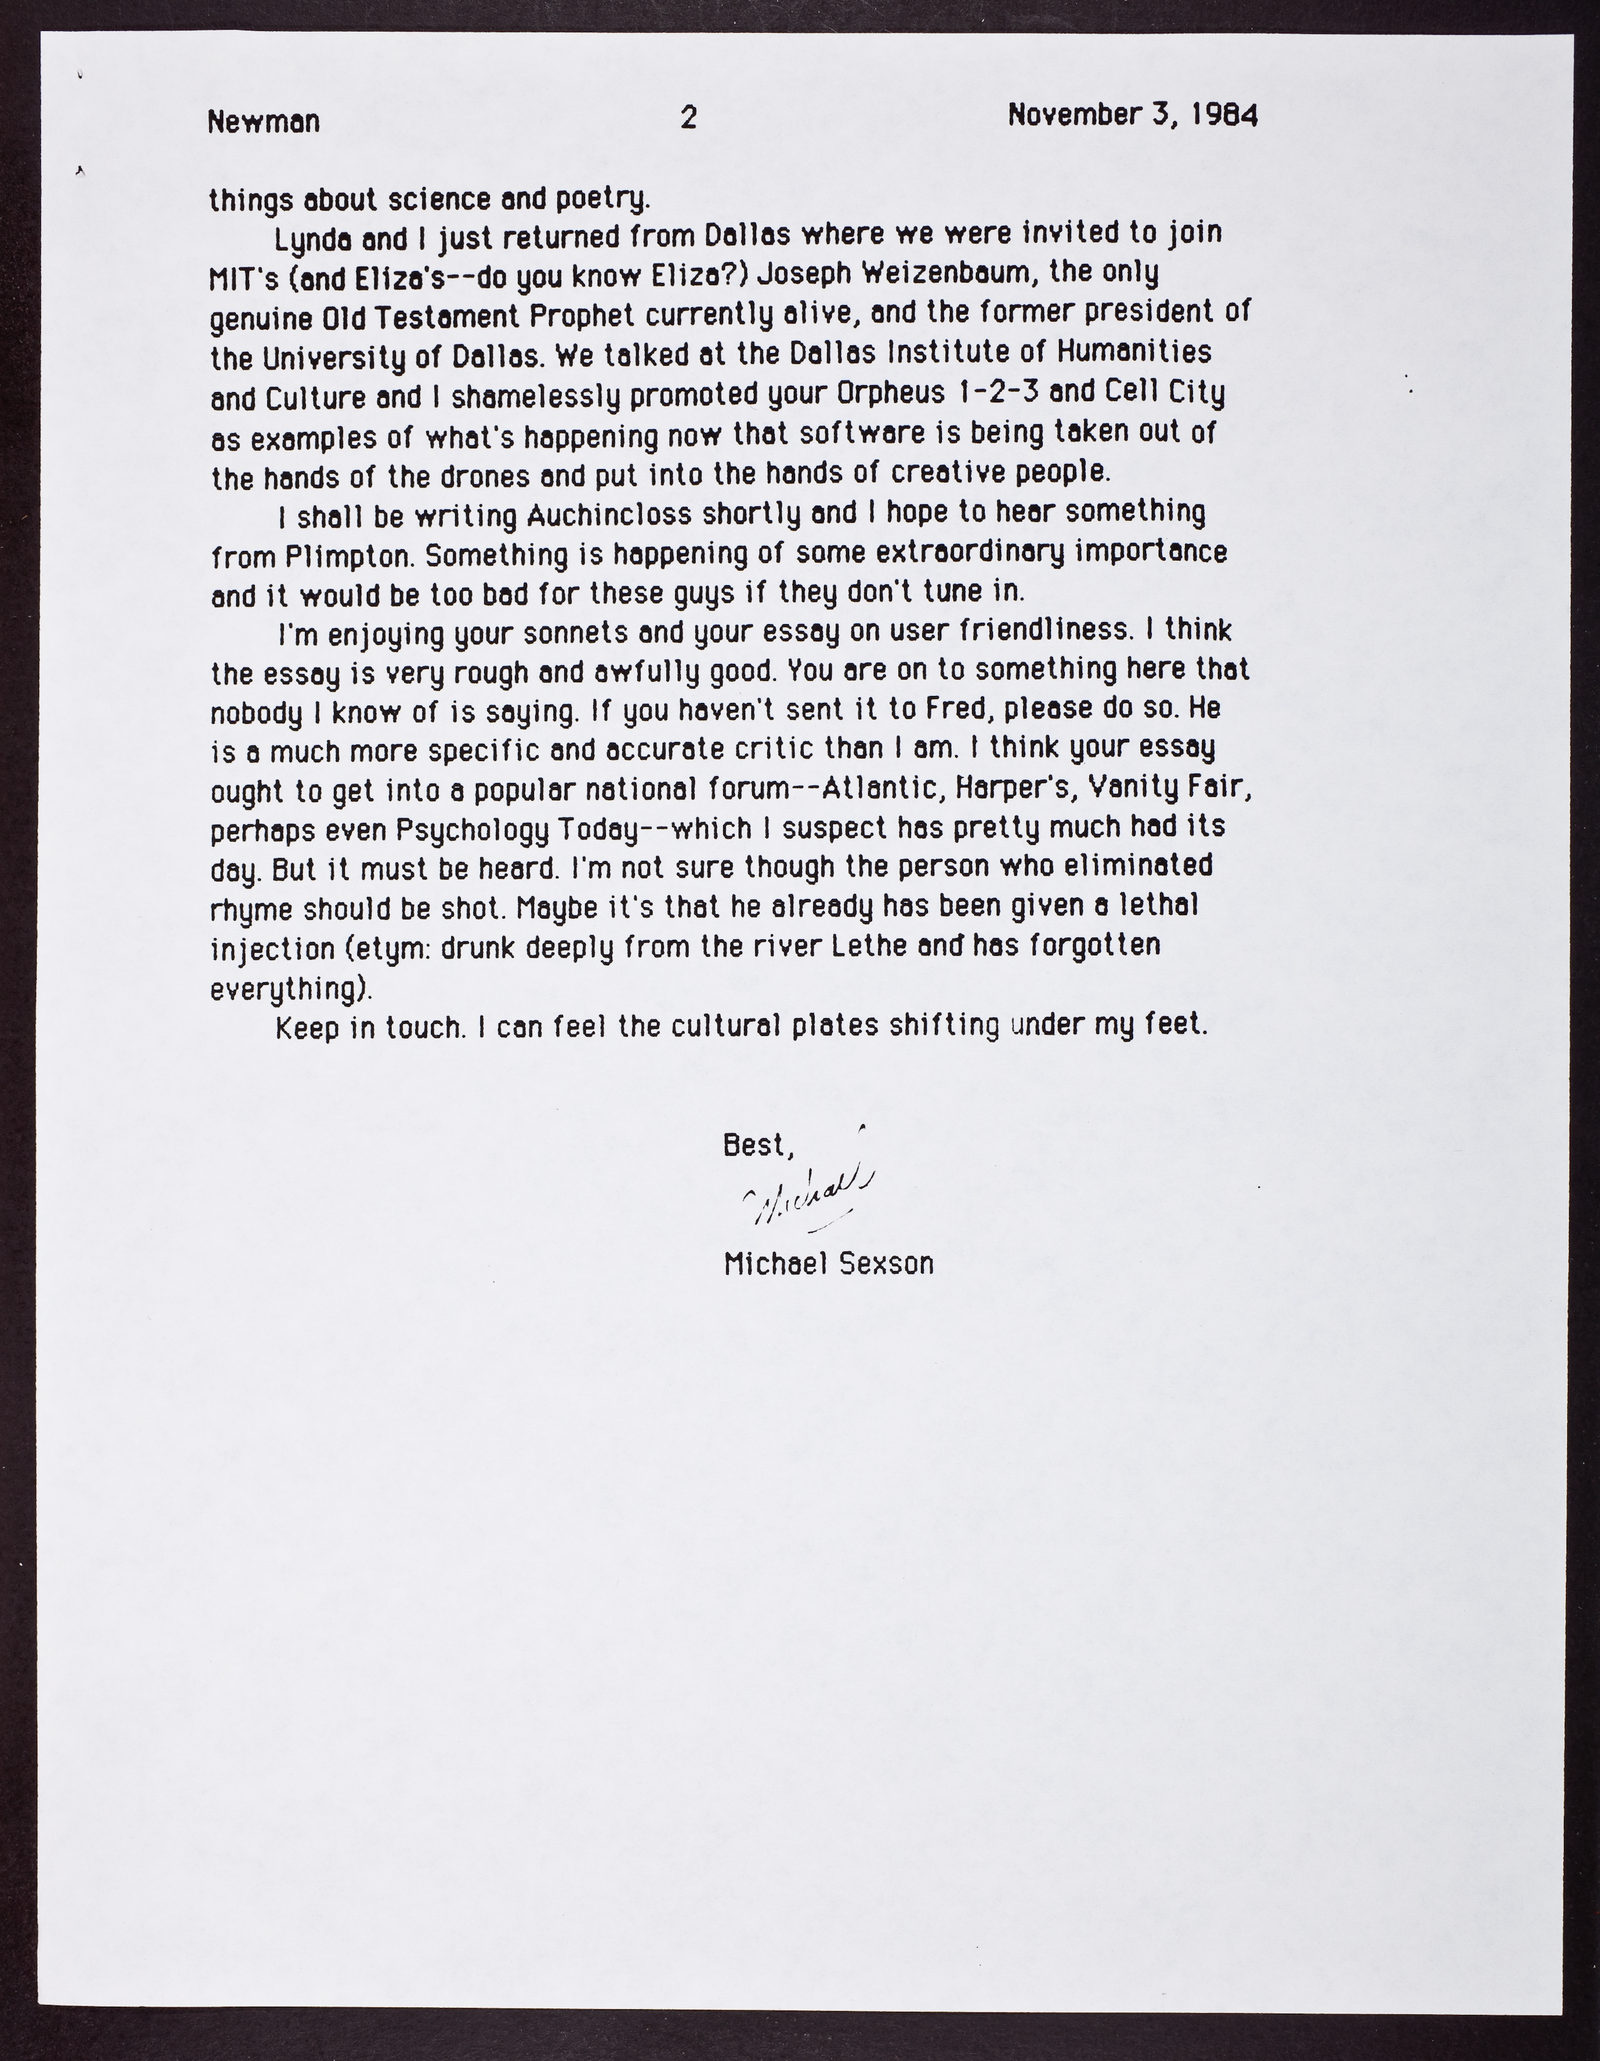 Newman 2 November 3, 1984
things about science and poetry.
Lynda and I just returned from Dallas where we were invited to join
MIT's (and Eliza's--do you know Eliza?) Joseph Weizenbaum, the only
genuine Old Testament Prophet currently alive, and the former president of
the University of Dallas. We talked at the Dallas Institute of Humanities
and Culture and I shamelessly promoted your Orpheus 1-2-3 and Cell City
as examples of what's happening now that software is being taken out of
the hands of the drones and put into the hands of creative people.
I shall be writing Auchincloss shortly and I hope to hear something
from Plimpton. Something is happening of some extraordinary importance
and it would be too bad for these guys if they don't tune in.
I'm enjoying your sonnets and your essay on user friendliness. I think
the essay is very rough and awfully good. You are on to something here that
nobody I know of is saying. If you haven't sent it to Fred, please do so. He
is a much more specific and accurate critic than I am. I think your essay
ought to get into a popular national forum--Atlantic, Harper's, Vanity Fair,
perhaps even Psychology Today--which I suspect has pretty much had its
day. But it must be heard. I'm not sure though the person who eliminated
rhyme should be shot. Maybe it's that he already has been given a lethal
injection (etym: drunk deeply from the river Lethe and has forgotten
everything).
Keep in touch. I can feel the cultural plates shifting under my feet.
Best,
Michael
Michael Sexson